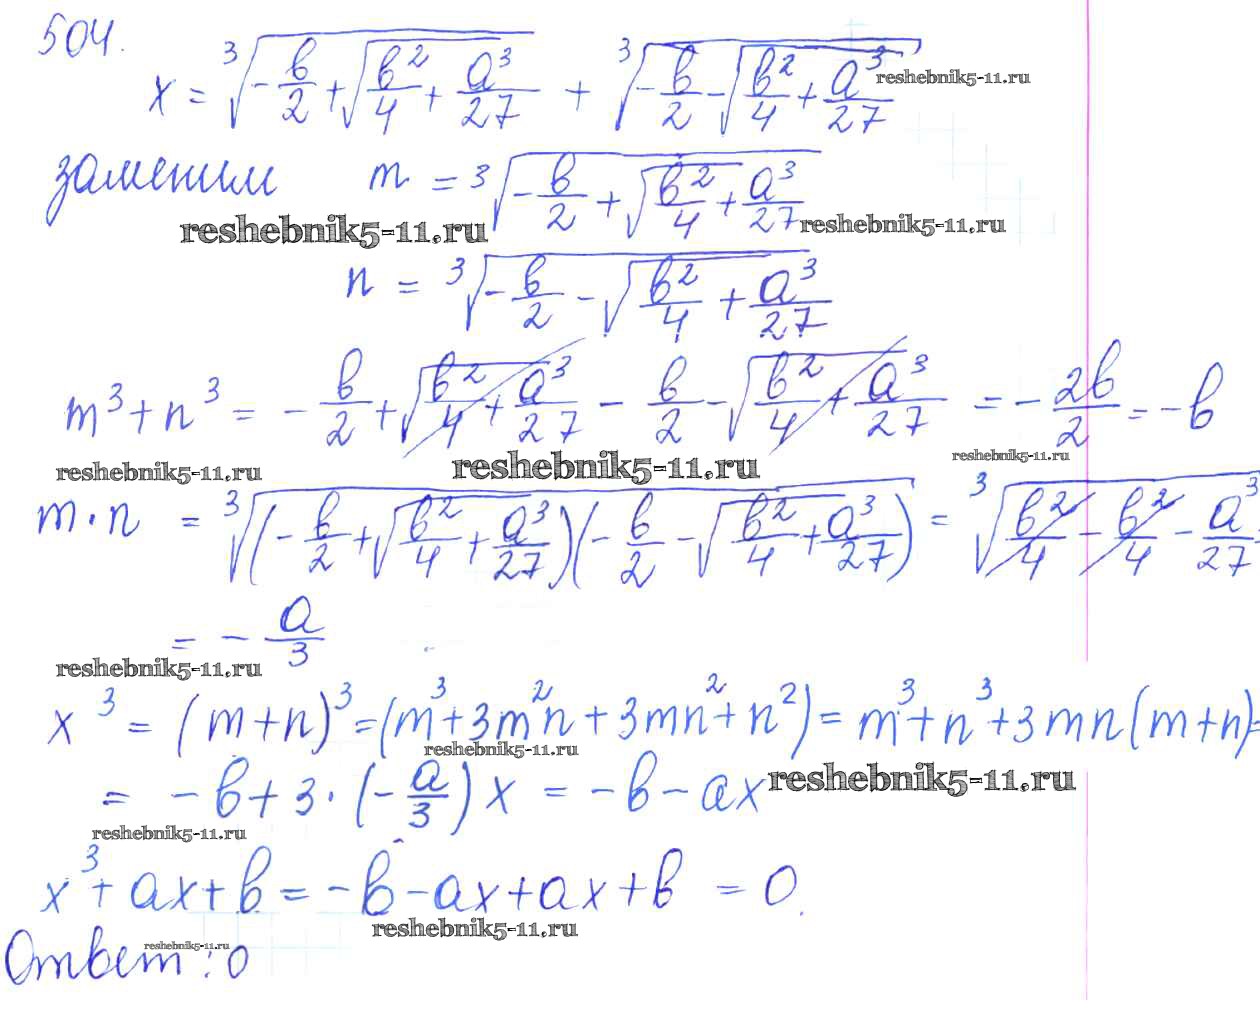 504.
x = ∛(-b/2 + √(b²/4 + a³/27)) + ∛(-b/2 - √(b²/4 + a³/27)) reshebnik5-11.ru
заменим m = ∛(-b/2 + √(b²/4 + a³/27))
reshebnik5-11.ru reshebnik5-11.ru
n = ∛(-b/2 - √(b²/4 + a³/27))
m³ + n³ = -b/2 + √(b²/4 + a³/27) - b/2 - √(b²/4 + a³/27) = -2b/2 = -b
reshebnik5-11.ru reshebnik5-11.ru reshebnik5-11.ru
m · n = ∛((-b/2 + √(b²/4 + a³/27))(-b/2 - √(b²/4 + a³/27))) = ∛(b²/4 - b²/4 - a³/27) =
= -a/3
reshebnik5-11.ru
x³ = (m+n)³ = (m³ + 3m²n + 3mn² + n²) = m³ + n³ + 3mn(m+n) =
reshebnik5-11.ru
= -b + 3 · (-a/3)x = -b - ax reshebnik5-11.ru
reshebnik5-11.ru
x³ + ax + b = -b - ax + ax + b = 0.
reshebnik5-11.ru
Ответ: 0 reshebnik5-11.ru